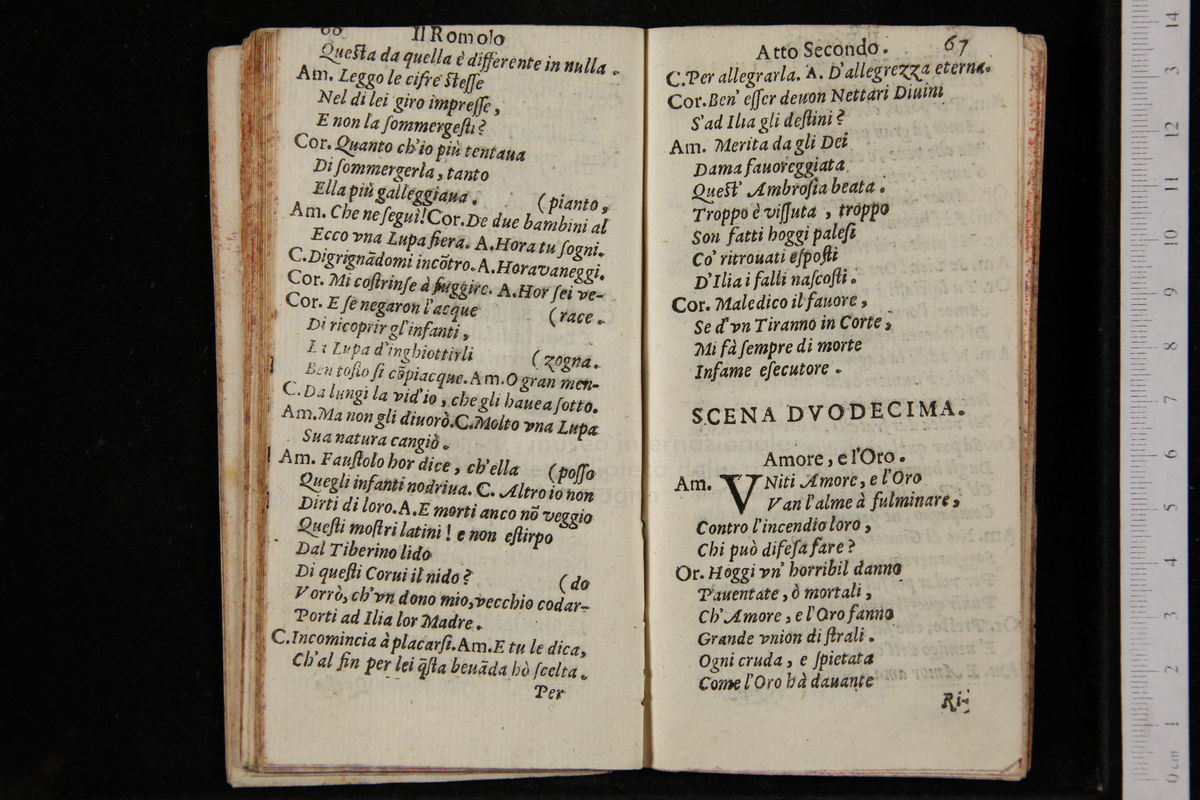 Il Romolo
Questa da quella è differente in nulla.
Am. Leggo le cifre stesse
Nel di lei giro impresse,
E non la sommergesti?
Cor. Quanto ch'io più tentaua
Di sommergerla, tanto
Ella più galleggiaua. (pianto,
Am. Che ne seguì! Cor. De due bambini al
Ecco vna Lupa fiera. A. Hora tu sogni.
C. Digrignādomi incōtro. A. Hora vaneggi.
Cor. Mi costrinse à fuggire. A. Hor sei ve-
Cor. E se negaron l'acque (race.
Di ricoprir gl'infanti,
La Lupa d'inghiottirli (zogna.
Ben tosto si cōpiacque. Am. O gran men-
C. Da lungi la vid'io, che gli haue a sotto.
Am. Ma non gli diuorò. C. Molto vna Lupa
Sua natura cangiò.
Am. Faustolo hor dice, ch'ella (posso
Quegli infanti nodriua. C. Altro io non
Dirti di loro. A. E morti anco nō veggio
Questi mostri latini! e non estirpo
Dal Tiberino lido
Di questi Corui il nido? (do
Vorrò, ch'vn dono mio, vecchio codar-
Porti ad Ilia lor Madre.
C. Incomincia à placarsi. Am. E tu le dica,
Ch'al fin per lei q̄sta beuāda hò scelta.
Per
Atto Secondo. 67
C. Per allegrarla. A. D'allegrezza eterna.
Cor. Ben' esser deuon Nettari Diuini
S'ad Ilia gli destini?
Am. Merita da gli Dei
Dama fauoreggiata
Quest' Ambrosia beata.
Troppo è vissuta, troppo
Son fatti hoggi palesi
Co' ritrouati esposti
D'Ilia i falli nascosti.
Cor. Maledico il fauore,
Se d'vn Tiranno in Corte,
Mi fà sempre di morte
Infame esecutore.
SCENA DVODECIMA.
Amore, e l'Oro.
Am. VNiti Amore, e l'Oro
Van l'alme à fulminare,
Contro l'incendio loro,
Chi può difesa fare?
Or. Hoggi vn' horribil danno
Pauentate, ò mortali,
Ch' Amore, e l'Oro fanno
Grande vnion di strali.
Ogni cruda, e spietata
Come l'Oro hà dauante
Ri-